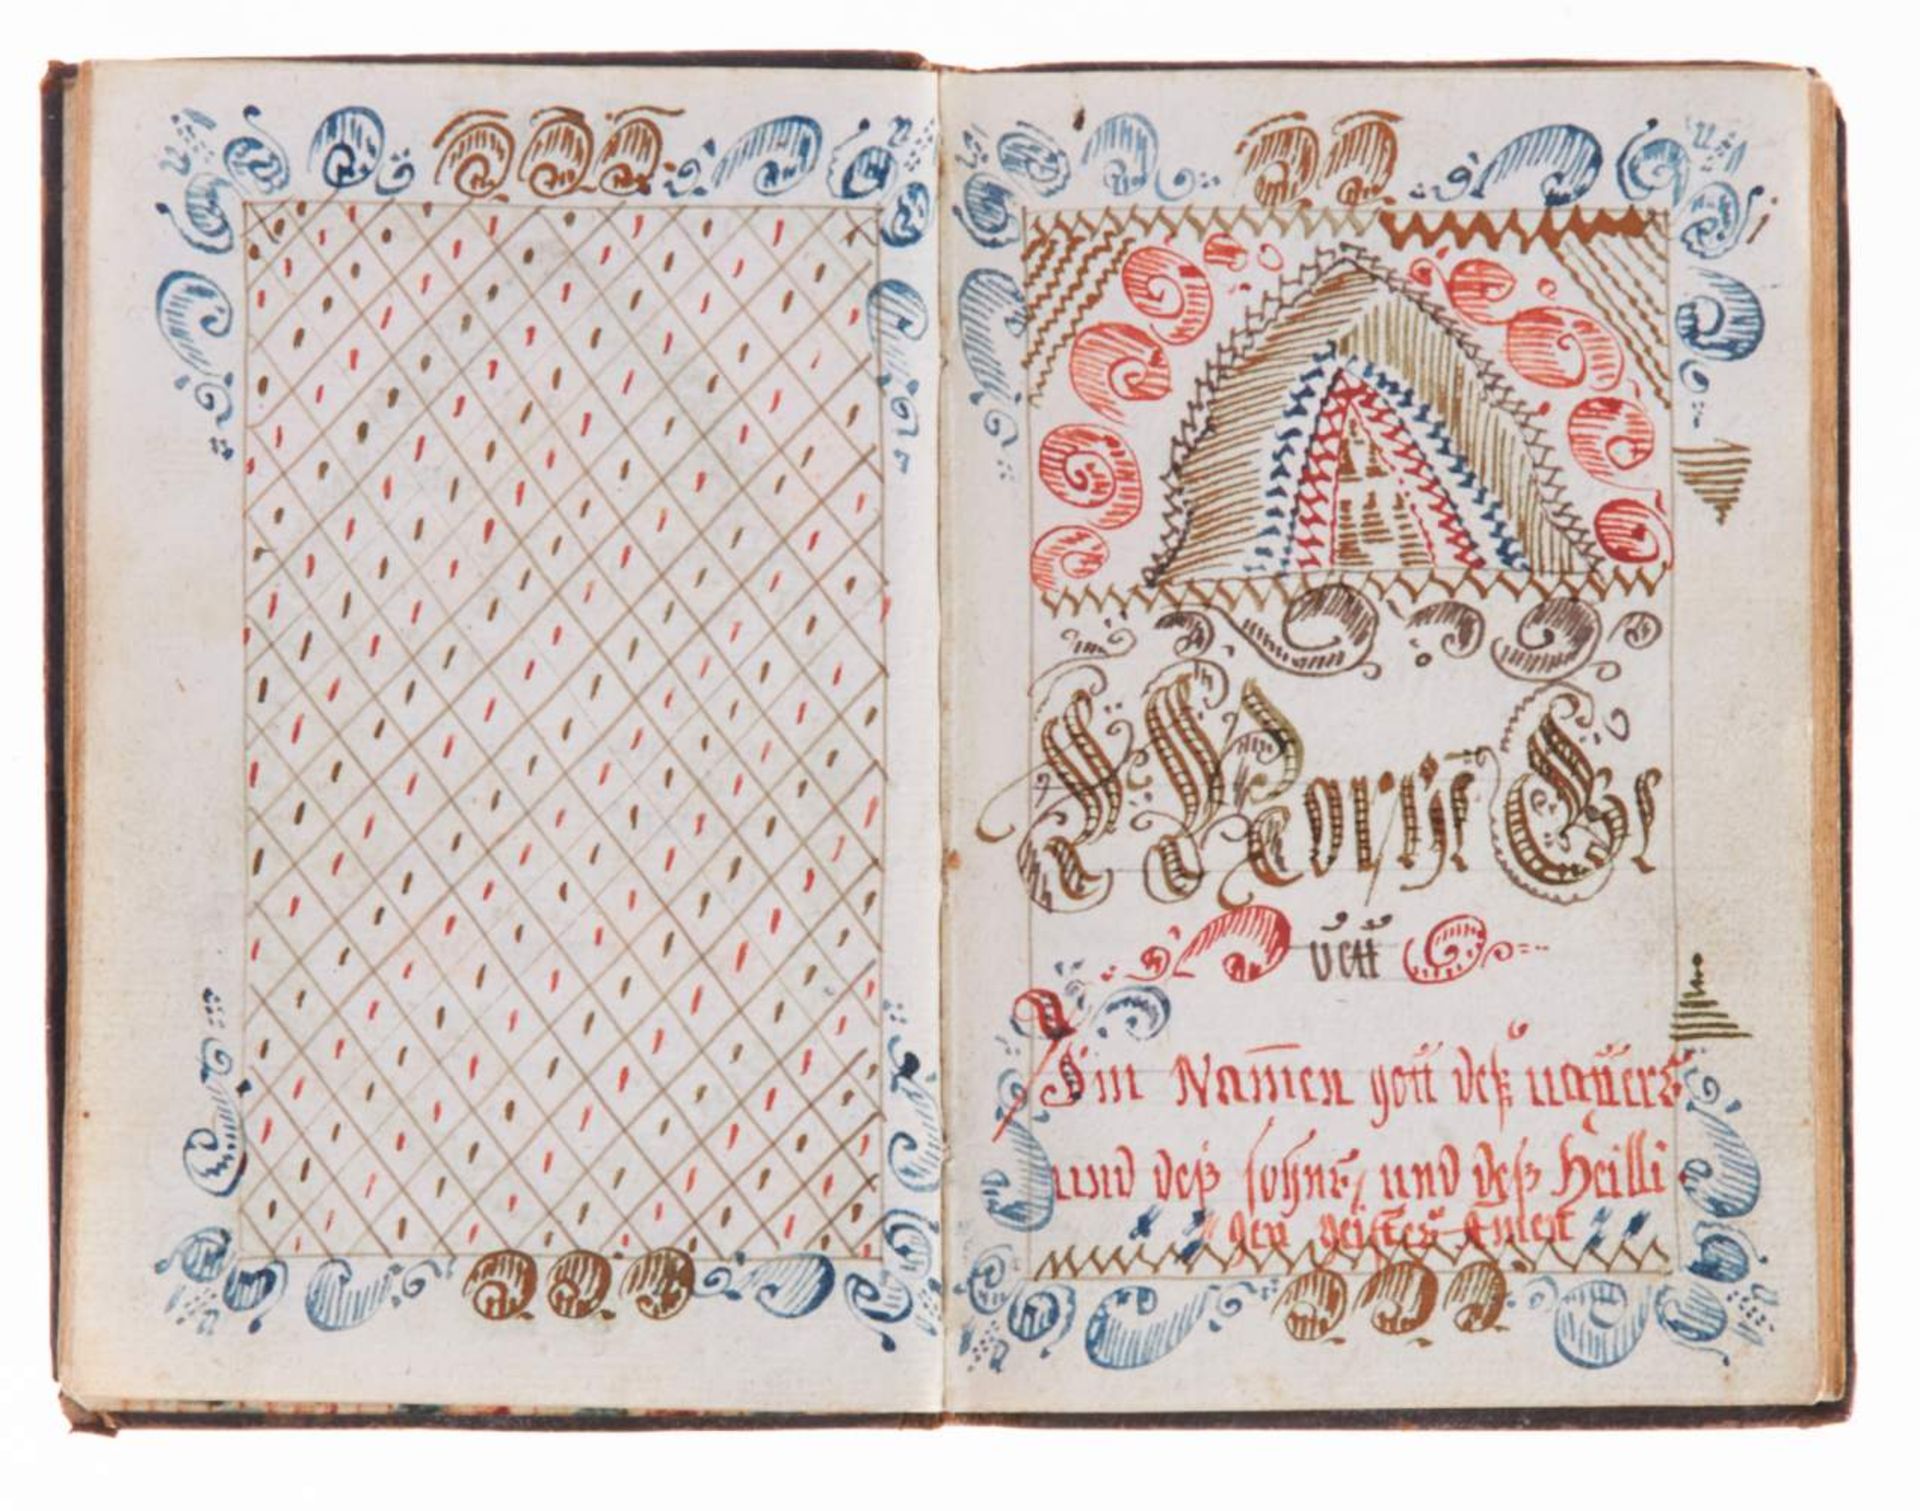 Morg Ge
bett
Im Namen gott deß vatters
und deß sohns, und deß Heilli
gen geistes Amen